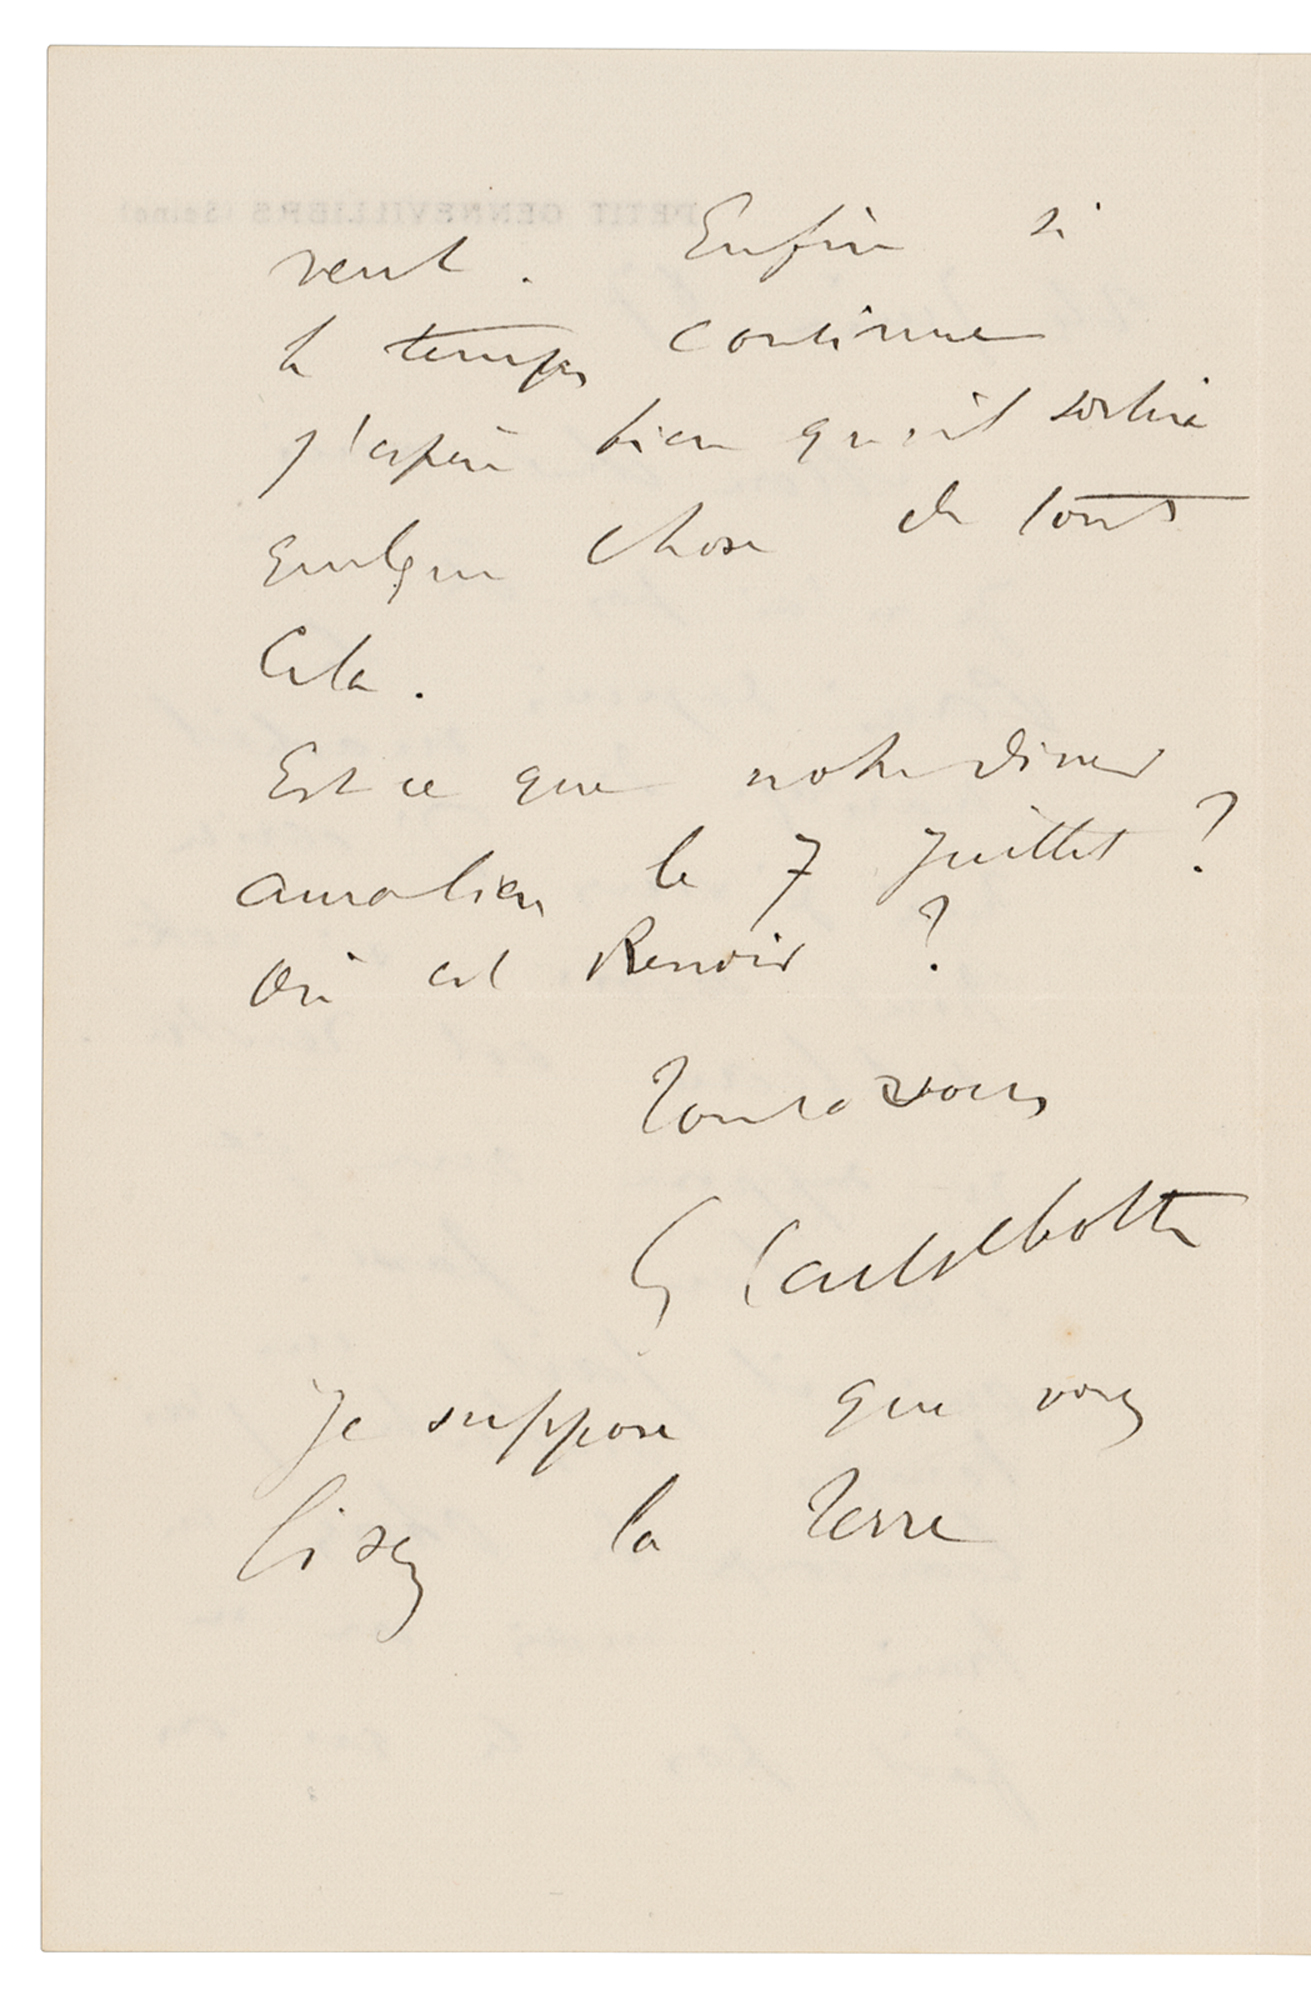 vent. Enfin si
le temps continue
j'espère bien qu'il sortira
quelque chose de tout
Cela.
Est ce que notre diner
aura lieu le 7 Juillet ?
Où est Renoir ?
Tout a vous
G Caillebotte
Je suppose que vous
lisez la Terre
PETIT GENNEVILLIERS (Seine)